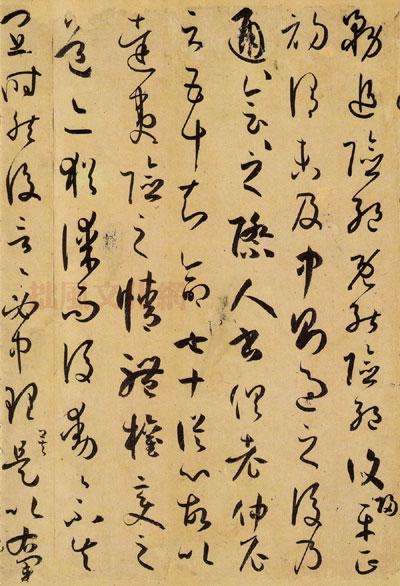 務追險絕既能險絕復歸平正
初謂未及中則過之後乃
通〻會〻之際人書俱老仲尼
云五十知命七十從心故以
達夷險之情體權變之
道亦猶謀而後動〻不失
宜時然後言〻必中理矣是以右軍
拙風文化網